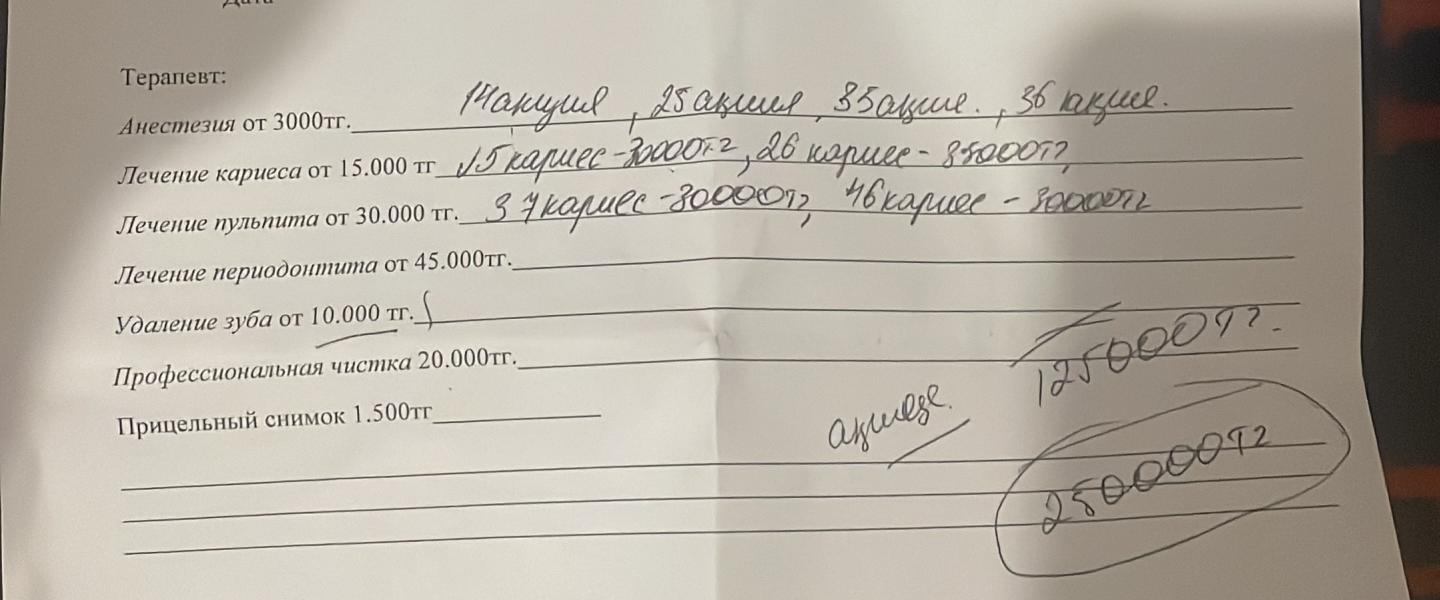 Дата
Терапевт:
Анестезия от 3000тг. 14 акция, 25 акция, 35 акция., 36 акция.
Лечение кариеса от 15.000 тг 15 кариес - 30000тг, 26 кариес - 35000тг,
Лечение пульпита от 30.000 тг. 37 кариес - 30000тг, 46 кариес - 30000тг
Лечение периодонтита от 45.000тг.
Удаление зуба от 10.000 тг.
Профессиональная чистка 20.000тг.
125000тг.
Прицельный снимок 1.500тг
250000тг